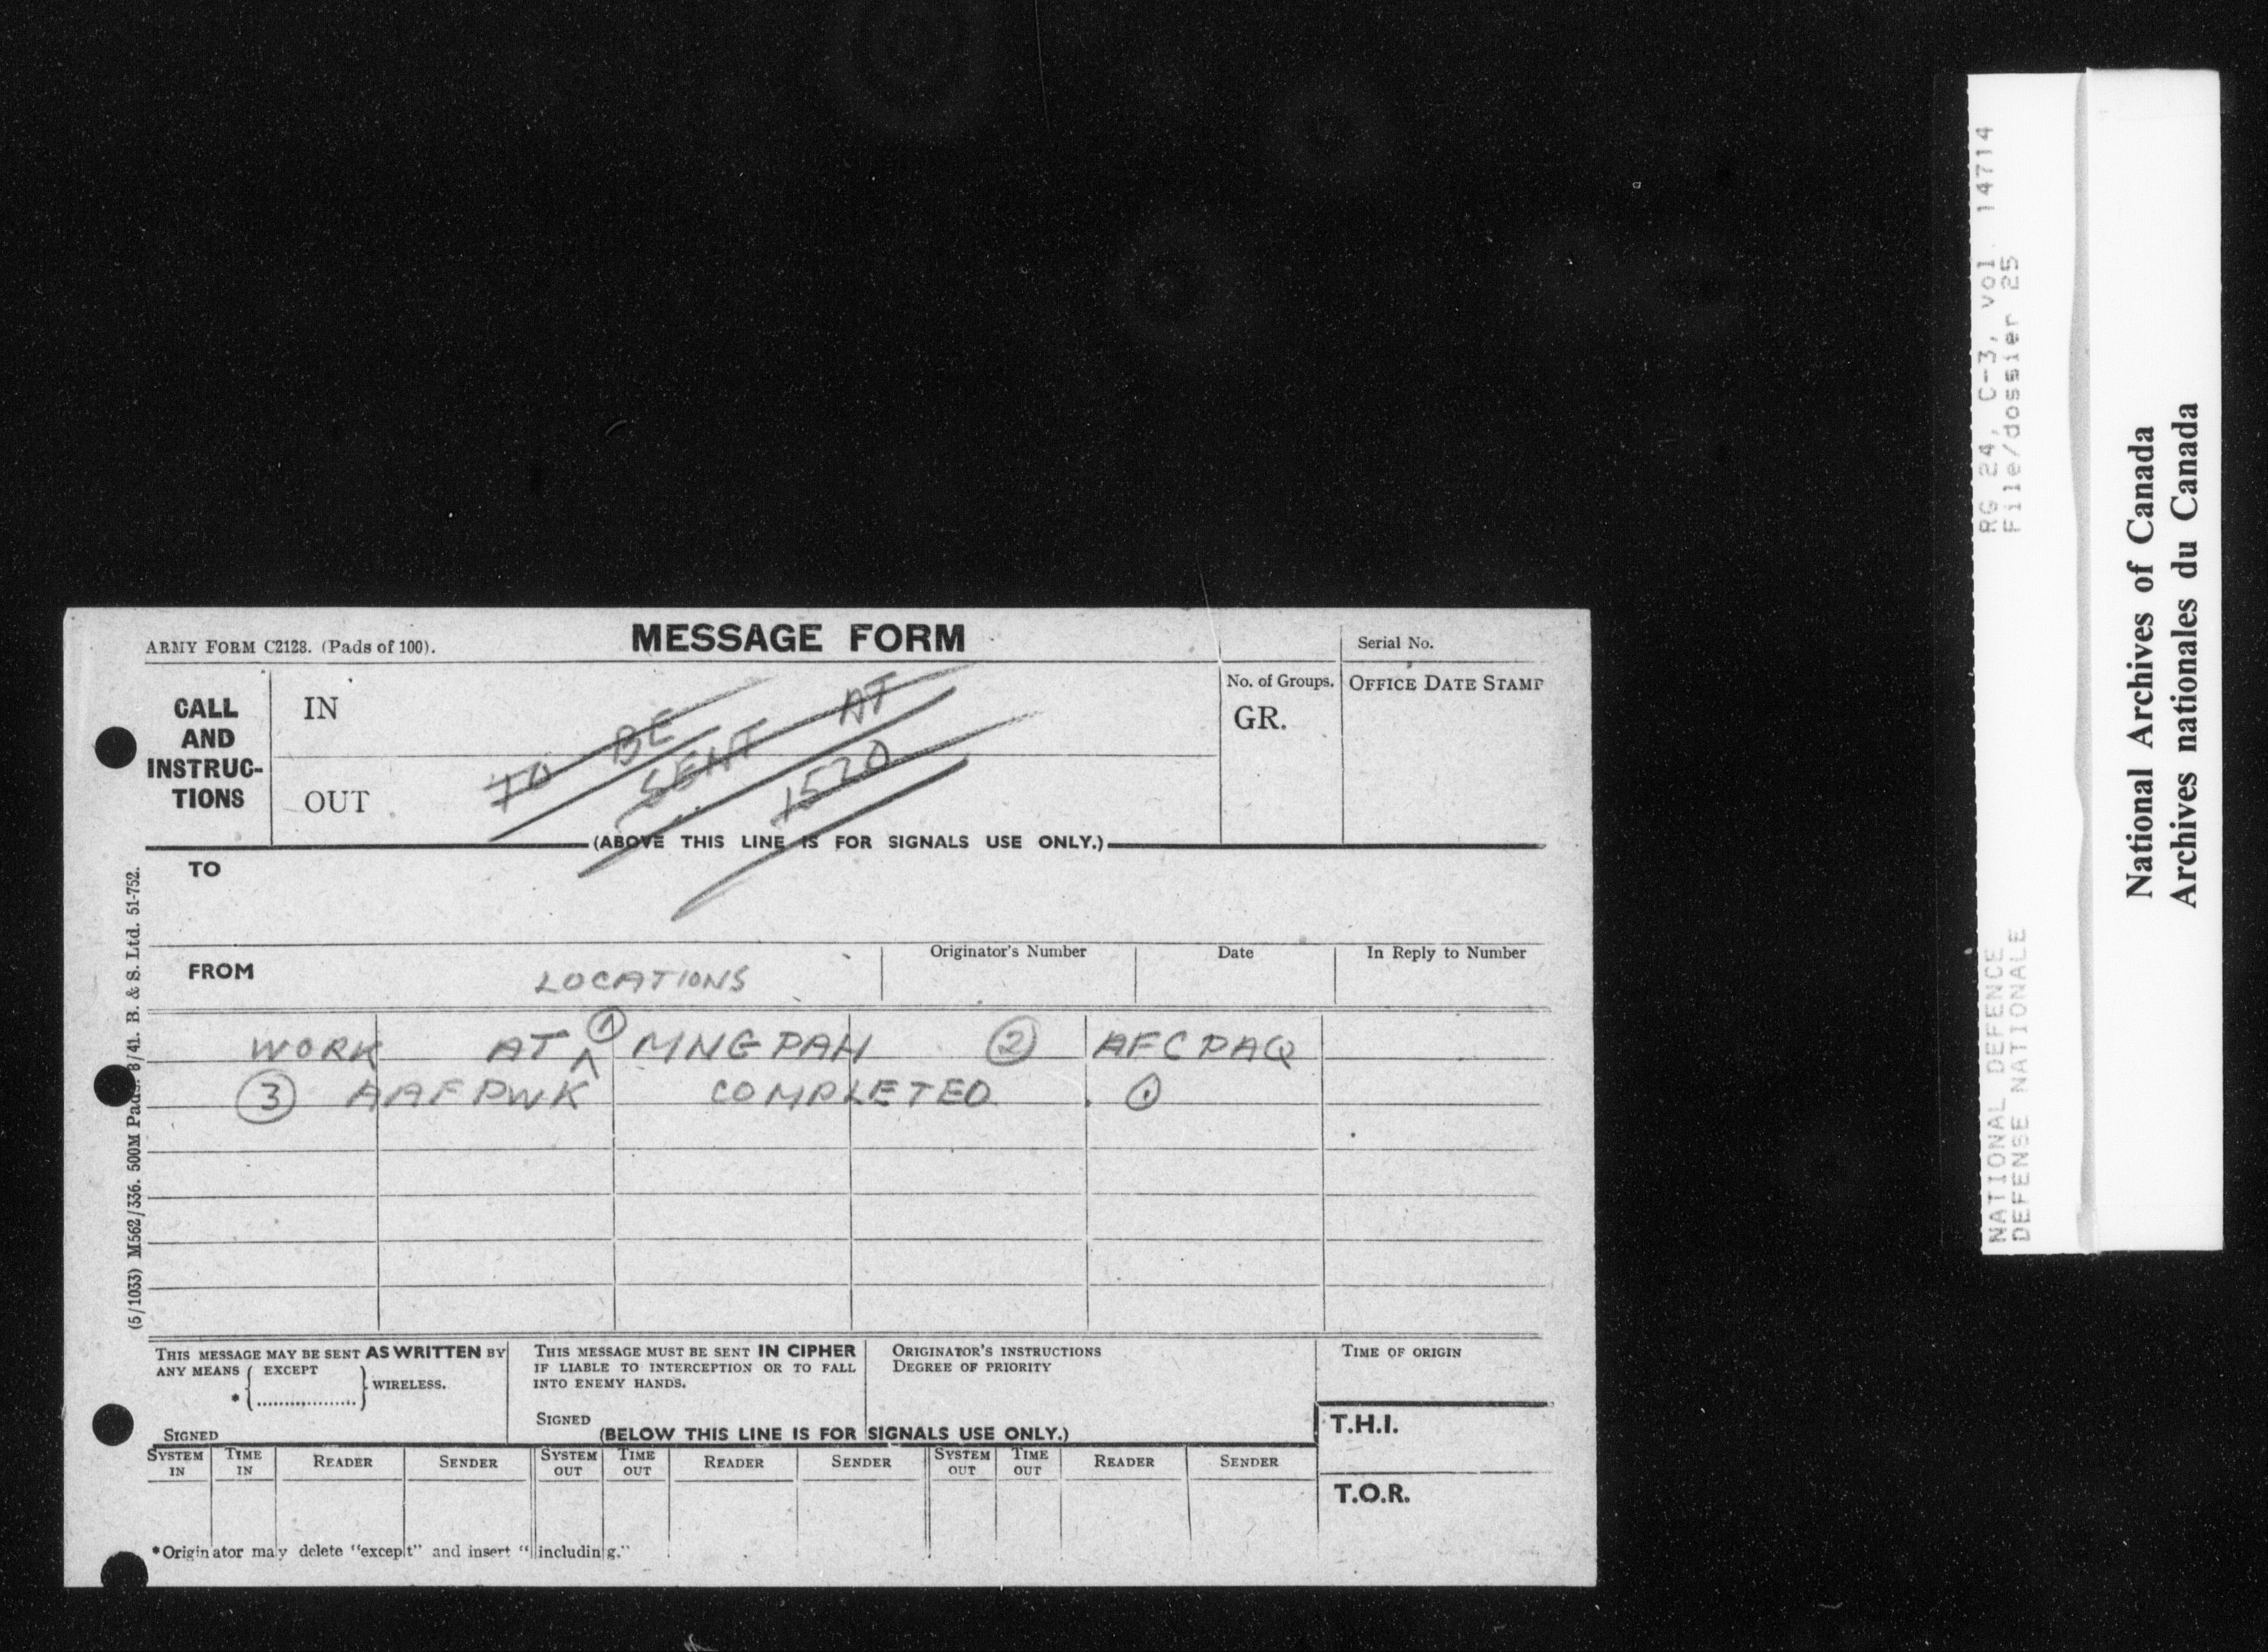 ARMY FORM C2128. (Pads of 100).
MESSAGE FORM
Serial No.
CALL
AND
INSTRUC-
TIONS
IN
OUT
TO BE
SENT AT
1520
No. of Groups.
GR.
OFFICE DATE STAMP
(ABOVE THIS LINE IS FOR SIGNALS USE ONLY.)
TO
FROM
Originator's Number
Date
In Reply to Number
LOCATIONS
WORK AT ^ ① MNGPAH ② AFCPAQ
③ AAFPWK COMPLETED .
(5/1033) M562/336. 500M Pads. 8/41. B. & S. Ltd. 51-752.
THIS MESSAGE MAY BE SENT AS WRITTEN BY
ANY MEANS { EXCEPT
* { .................. } WIRELESS.
SIGNED
THIS MESSAGE MUST BE SENT IN CIPHER
IF LIABLE TO INTERCEPTION OR TO FALL
INTO ENEMY HANDS.
SIGNED
ORIGINATOR'S INSTRUCTIONS
DEGREE OF PRIORITY
TIME OF ORIGIN
(BELOW THIS LINE IS FOR SIGNALS USE ONLY.)
T.H.I.
T.O.R.
SYSTEM IN TIME IN READER SENDER SYSTEM OUT TIME OUT READER SENDER SYSTEM OUT TIME OUT READER SENDER
*Originator may delete "except" and insert "including."
RG 24, C-3, vol 14714
File/dossier 25
NATIONAL DEFENCE
DEFENSE NATIONALE
National Archives of Canada
Archives nationales du Canada